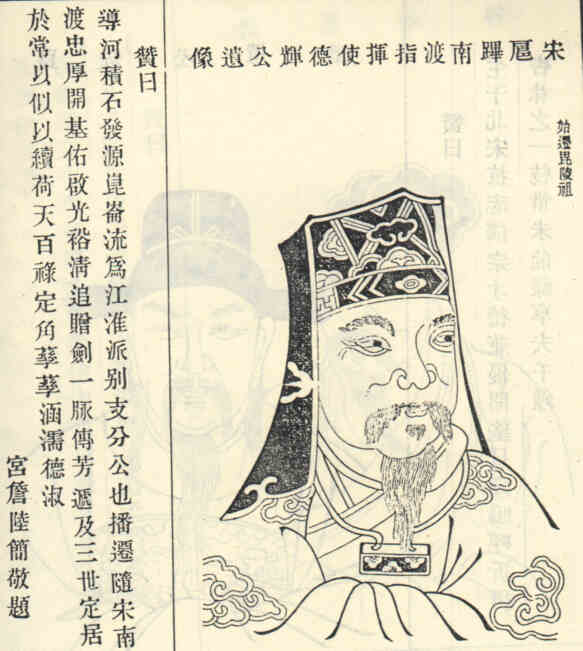 宋扈蹕南渡指揮使德輝公遺像
始遷毘陵祖
贊曰
導河積石發源崑崙流爲江淮派别支分公也播遷隨宋南
渡忠厚開基佑啟光裕淸追贈劍一脉傳芳遞及三世定居
於常以似以續荷天百祿定角蓁蓁涵濡德淑
宮詹陸簡敬題